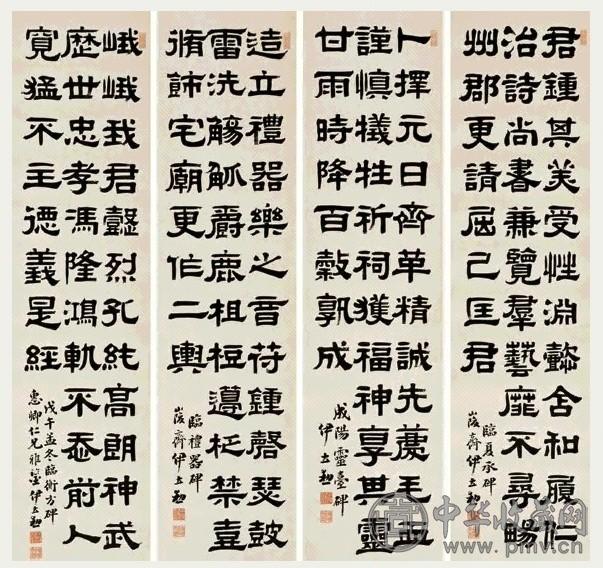 君鍾其美受性淵懿含和履仁
治詩尚書兼覽羣藝靡不尋暢
州郡更請屈己匡君
臨夏承碑
峻齋伊立勳
卜擇元日齊革精誠先薦毛血
謹慎犧牲祈祠獲福神享其靈
甘雨時降百穀孰成
成陽靈臺碑
伊立勳
造立禮器樂之音符鍾磬瑟鼓
雷洗觴觚爵鹿柤梪籩柉禁壼
脩飾宅廟更作二輿
臨禮器碑
峻齋伊立勳
峨峨我君懿烈孔純高朗神武
歷世忠孝馮隆鴻軌不忝前人
寬猛不主德義是經
戊午孟冬臨衡方碑
惠卿仁兄雅鑒 伊立勳
中华收藏网
www.pmv.cn